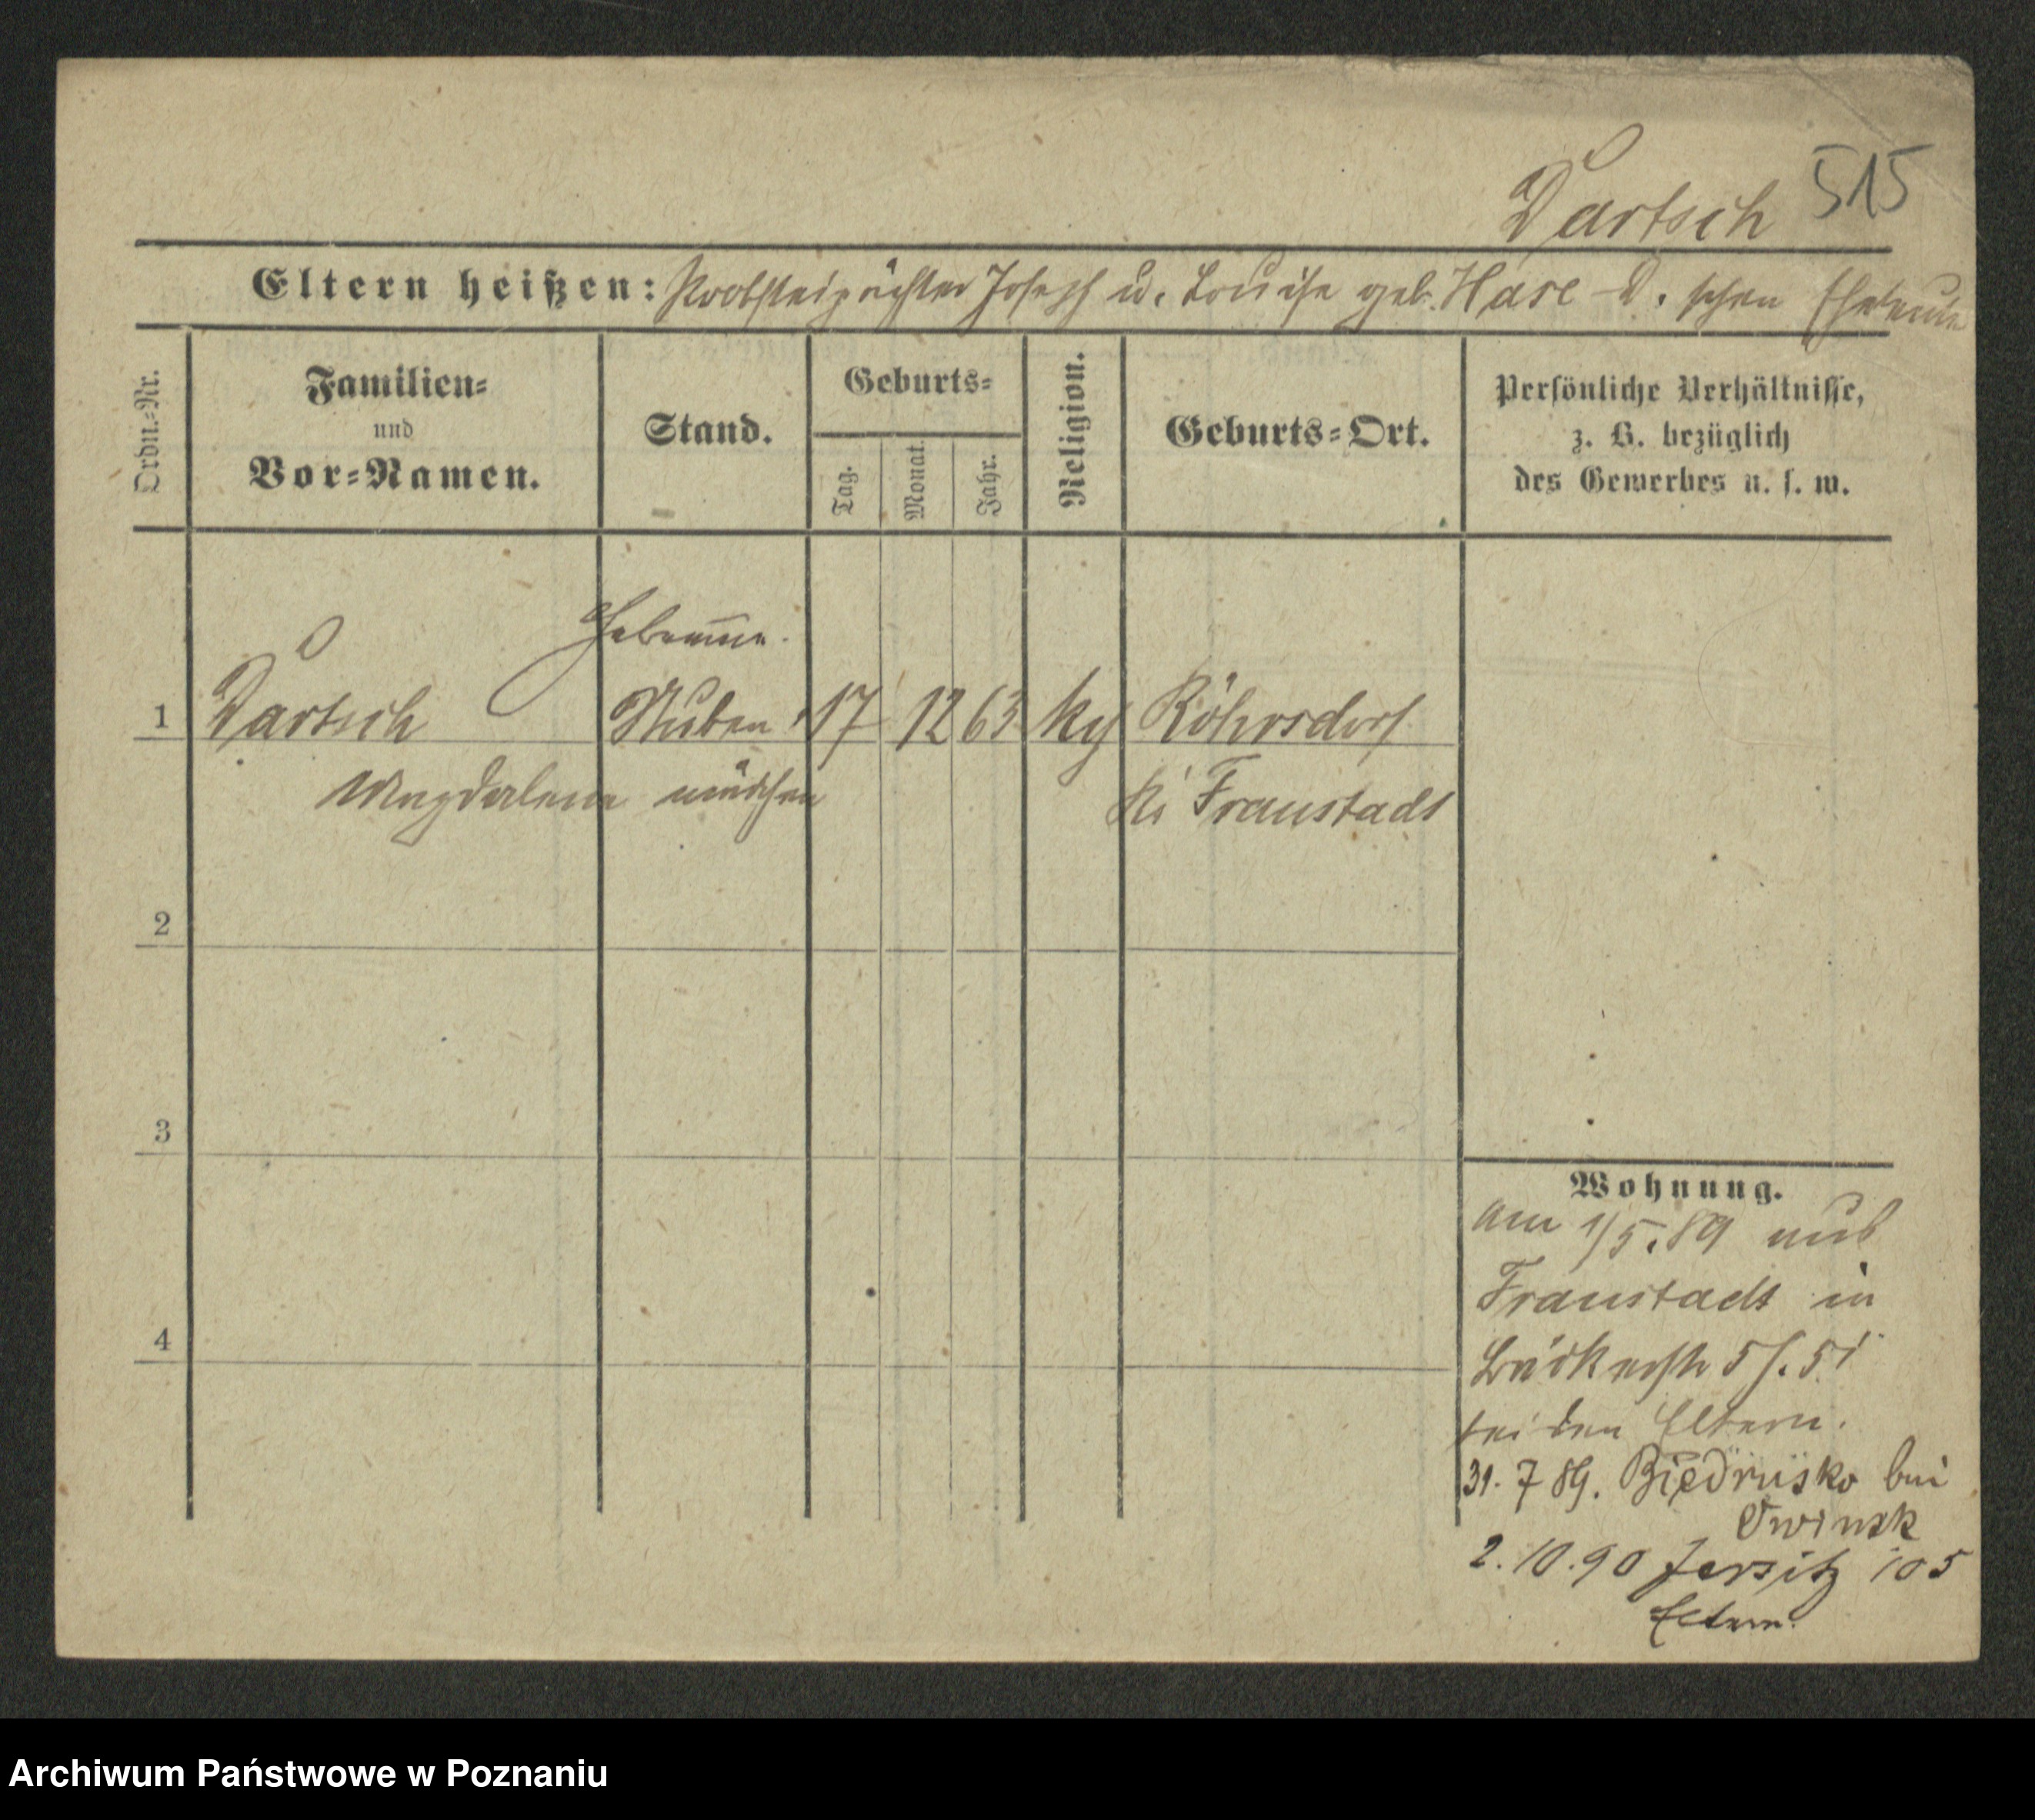 Dartsch 515
Eltern heißen: Probsteipächter Joseph u. Louise geb. Hase - D. schen Eheleute
Ordn.-Nr.
Familien-
und
Vor-Namen.
Stand.
Geburts-
Tag.
Monat.
Jahr.
Religion.
Geburts-Ort.
Persönliche Verhältnisse,
z. B. bezüglich
des Gewerbes u. s. w.
Hebamme.
1 Dartsch Stuben 17 12 63 kg Röhrsdorf
Magdalena mädchen Kr Fraustadt
2
3
4
Wohnung.
am 1/5.89 aus
Fraustadt in
Bäckerstr 5
bei den Eltern.
31.7 89. Biedrusko bei
Owinsk
2.10.90 Jersitz 105
Eltern.
Archiwum Państwowe w Poznaniu